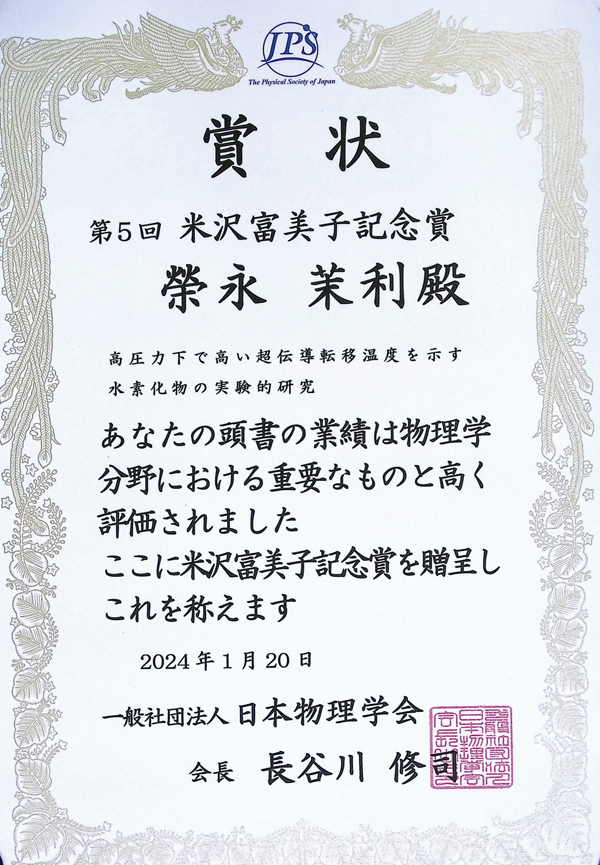 JPS
The Physical Society of Japan
賞 状
第5回 米沢富美子記念賞
榮永 茉利殿
高圧力下で高い超伝導転移温度を示す
水素化物の実験的研究
あなたの頭書の業績は物理学
分野における重要なものと高く
評価されました
ここに米沢富美子記念賞を贈呈し
これを称えます
2024年1月20日
一般社団法人 日本物理学会
会長 長谷川 修司